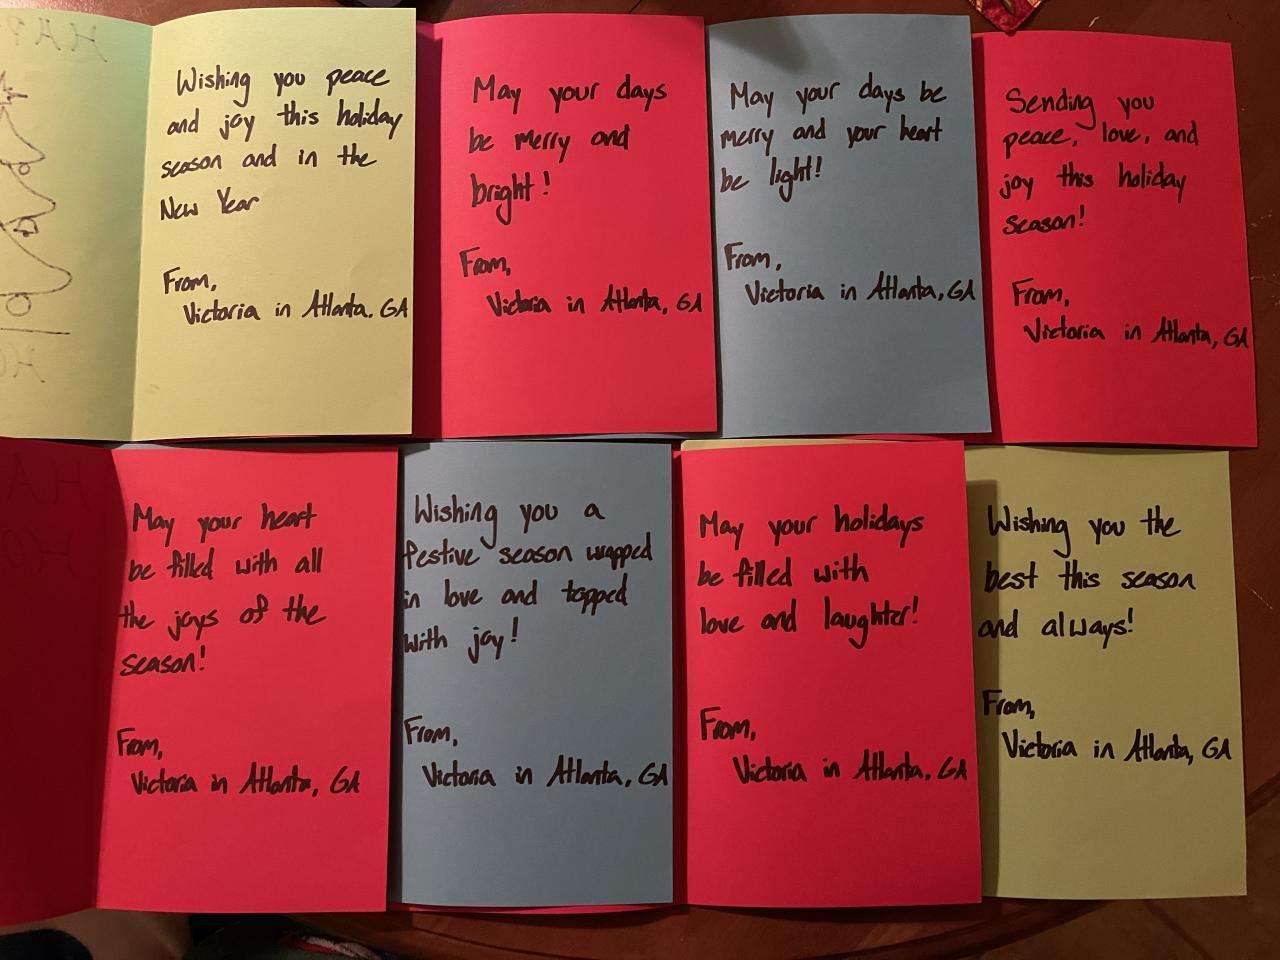 Wishing you peace
and joy this holiday
season and in the
New Year
From,
Victoria in Atlanta, GA
May your days
be merry and
bright!
From,
Victoria in Atlanta, GA
May your days be
merry and your heart
be light!
From,
Victoria in Atlanta, GA
Sending you
peace, love, and
joy this holiday
season!
From,
Victoria in Atlanta, GA
May your heart
be filled with all
the joys of the
season!
From,
Victoria in Atlanta, GA
Wishing you a
festive season wrapped
in love and topped
with joy!
From,
Victoria in Atlanta, GA
May your holidays
be filled with
love and laughter!
From,
Victoria in Atlanta, GA
Wishing you the
best this season
and always!
From,
Victoria in Atlanta, GA